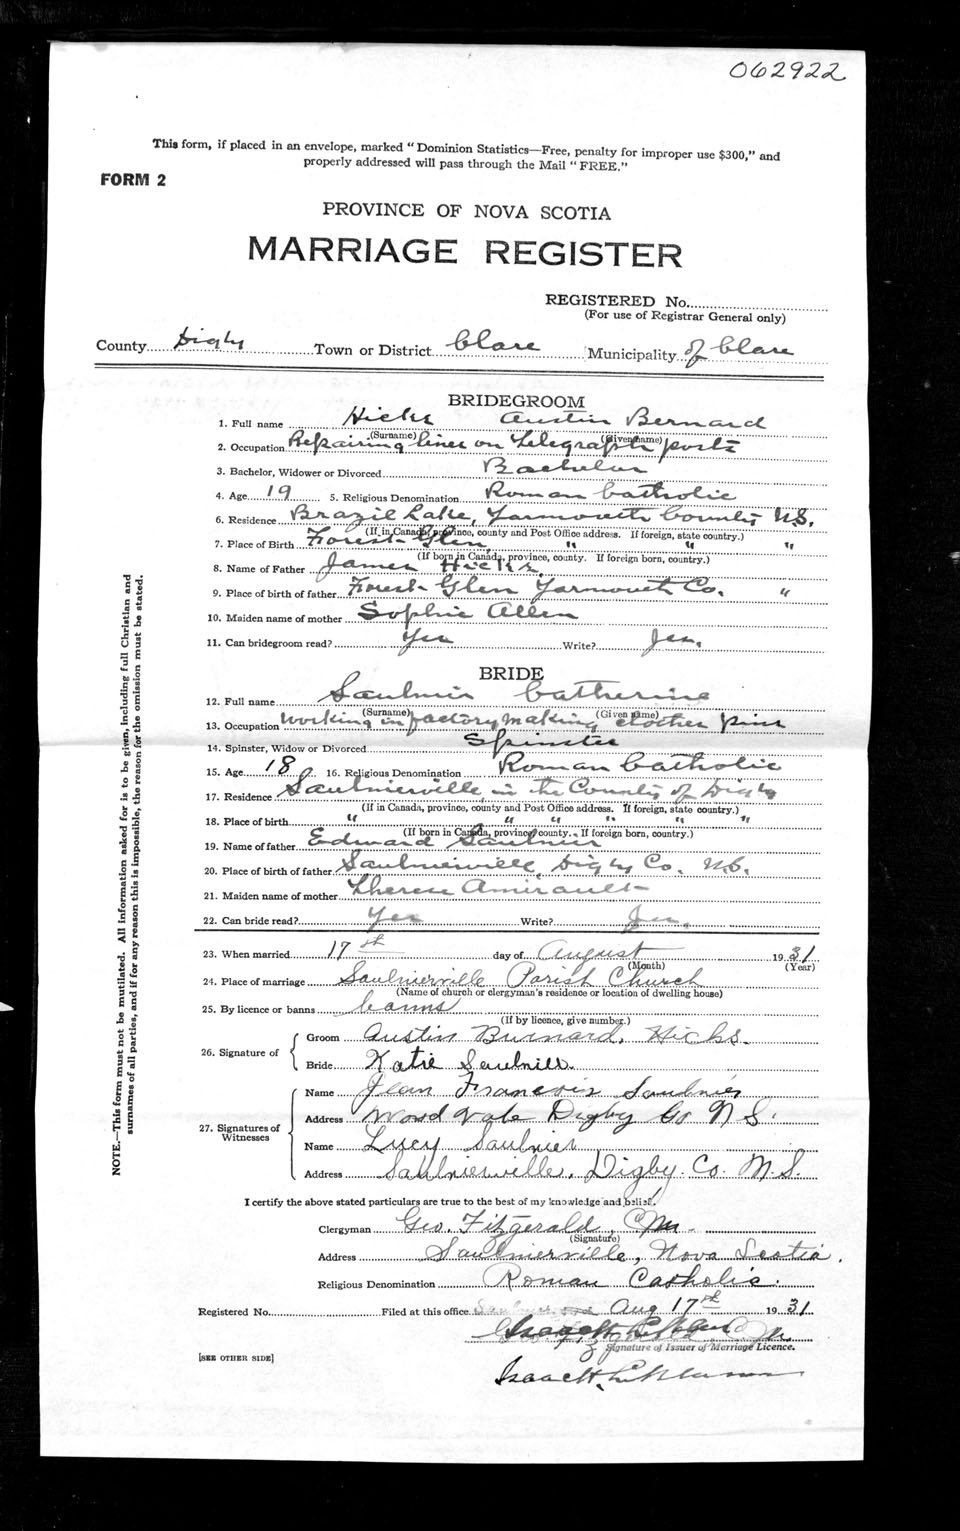 062922
This form, if placed in an envelope, marked "Dominion Statistics—Free, penalty for improper use $300," and
properly addressed will pass through the Mail "FREE."
FORM 2
PROVINCE OF NOVA SCOTIA
MARRIAGE REGISTER
REGISTERED No.
(For use of Registrar General only)
County Digby Town or District Clare Municipality of Clare
BRIDEGROOM
1. Full name Hicks Austin Bernard
(Surname) (Given name)
2. Occupation Repairing lines on telegraph posts
3. Bachelor, Widower or Divorced Bachelor
4. Age 19 5. Religious Denomination Roman Catholic
6. Residence Brazil Lake, Yarmouth County N.S.
(If in Canada, province, county and Post Office address. If foreign, state country.)
7. Place of Birth Forest Glen, " " "
(If born in Canada, province, county. If foreign born, country.)
8. Name of Father James Hicks
9. Place of birth of father Forest Glen Yarmouth Co. "
10. Maiden name of mother Sophie Allen
11. Can bridegroom read? Yes Write? Yes.
BRIDE
12. Full name Saulnier Catherine
(Surname) (Given name)
13. Occupation Working in factory making clothes pins
14. Spinster, Widow or Divorced Spinster
15. Age 18 16. Religious Denomination Roman Catholic
17. Residence Saulnierville, in the County of Digby
(If in Canada, province, county and Post Office address. If foreign, state country.)
18. Place of birth " " " " " "
(If born in Canada, province, county. If foreign born, country.)
19. Name of father Edward Saulnier
20. Place of birth of father Saulnierville, Digby Co. N.S.
21. Maiden name of mother Therese Amirault
22. Can bride read? Yes Write? Yes.
23. When married 17th day of August 1931
(Month) (Year)
24. Place of marriage Saulnierville Parish Church
(Name of church or clergyman's residence or location of dwelling house)
25. By licence or banns banns
(If by licence, give number.)
26. Signature of
Groom Austin Burnard. Hicks.
Bride Katie Saulnier.
27. Signatures of Witnesses
Name Jean Francois Saulnier
Address Wood Vale Digby Co N S.
Name Lucy Saulnier
Address Saulnierville, Digby. Co. N.S.
I certify the above stated particulars are true to the best of my knowledge and belief.
Clergyman Geo. Fitzgerald, CJM
(Signature)
Address Saulnierville, Nova Scotia.
Religious Denomination Roman Catholic.
Registered No. Filed at this office Aug 17th 1931
Signature of Issuer of Marriage Licence.
[SEE OTHER SIDE]
NOTE.—This form must not be mutilated. All information asked for is to be given, including full Christian and
surnames of all parties, and if for any reason this is impossible, the reason for the omission must be stated.